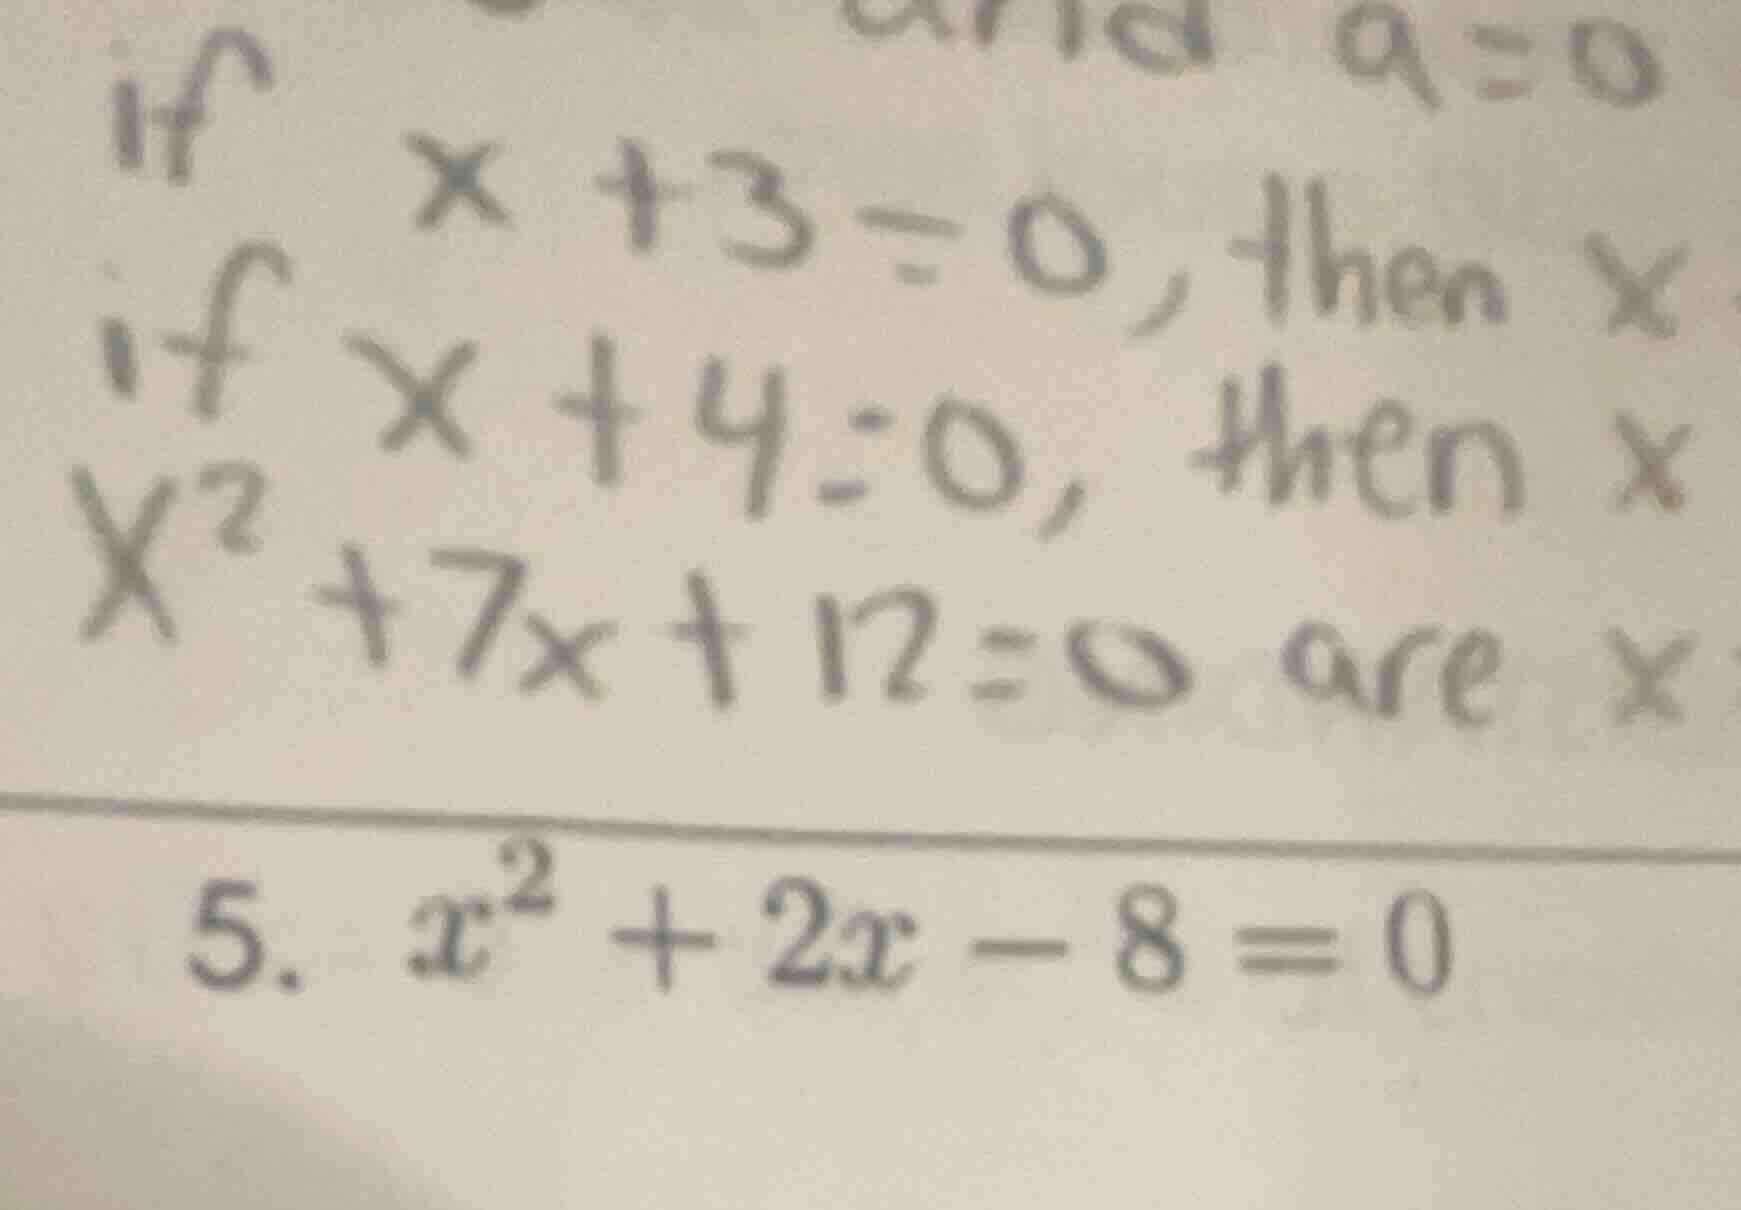 and a=0
if x+3=0, then x
if x+4=0, then x
x²+7x+12=0 are x
5. x² + 2x − 8 = 0